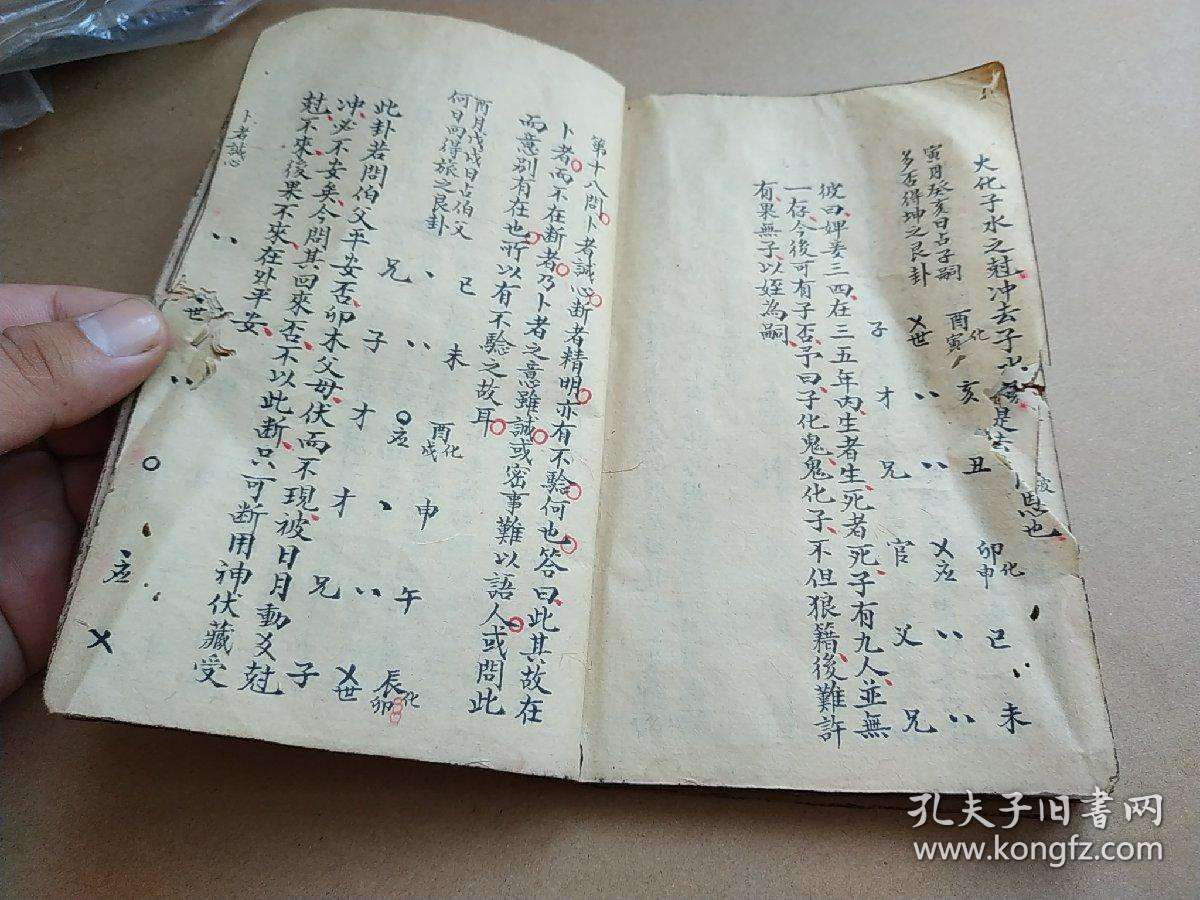 大化子水之尅冲去子
寅月癸亥日占子嗣
多否得坤之艮卦
子 〤世 化酉寅
才 〃 亥
兄 〃 丑
官 〤应 化卯申
父 〃 巳
兄 〃 未
彼曰婢妾三四在三五年內生者生死者死子有九人並無
一存今後可有子否予曰子化鬼鬼化子不但狼籍後難許
有果無子以姪為嗣
第十八問卜者誠心断者精明亦有不驗何也答曰此其故在
卜者而不在断者乃卜者之意雖誠或密事難以語人或問此
而意别有在也所以有不驗之故耳
酉月戊戌日占伯父
何日回得旅之艮卦
兄 、 巳
子 〃 未
才 〇应 化酉戌
才 、 申
兄 〃 午
子 〤世 化辰卯
此卦若問伯父平安否卯木父母伏而不現被日月動爻尅
冲必不安矣今問其回來否不以此断只可断用神伏藏受
尅不來後果不來在外平安
卜者誠心
世
应
孔夫子旧书网
www.kongfz.com